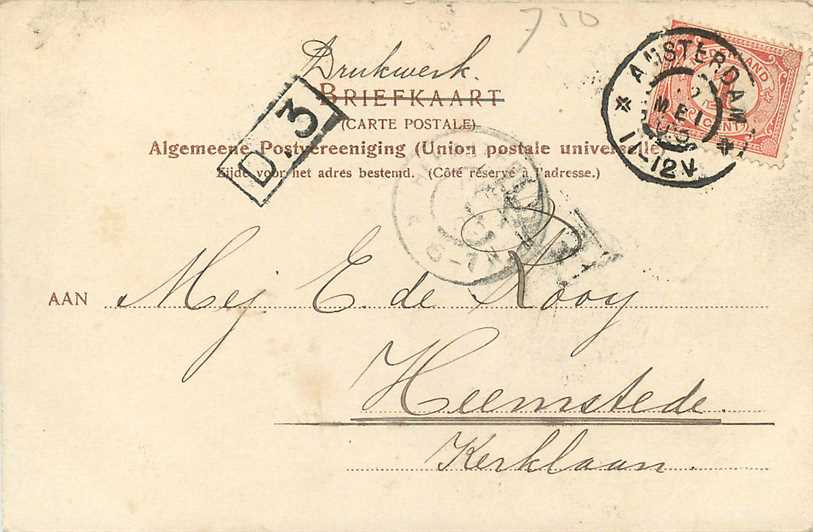 750
Drukwerk.
BRIEFKAART
(CARTE POSTALE)
Algemeene Postvereeniging (Union postale universelle)
Zijde voor het adres bestemd. (Côté réservé à l'adresse.)
D.3
AMSTERDAM
MEI
11-12V
CENT
AAN Mej E. de Rooy
Heemstede.
Kerklaan.